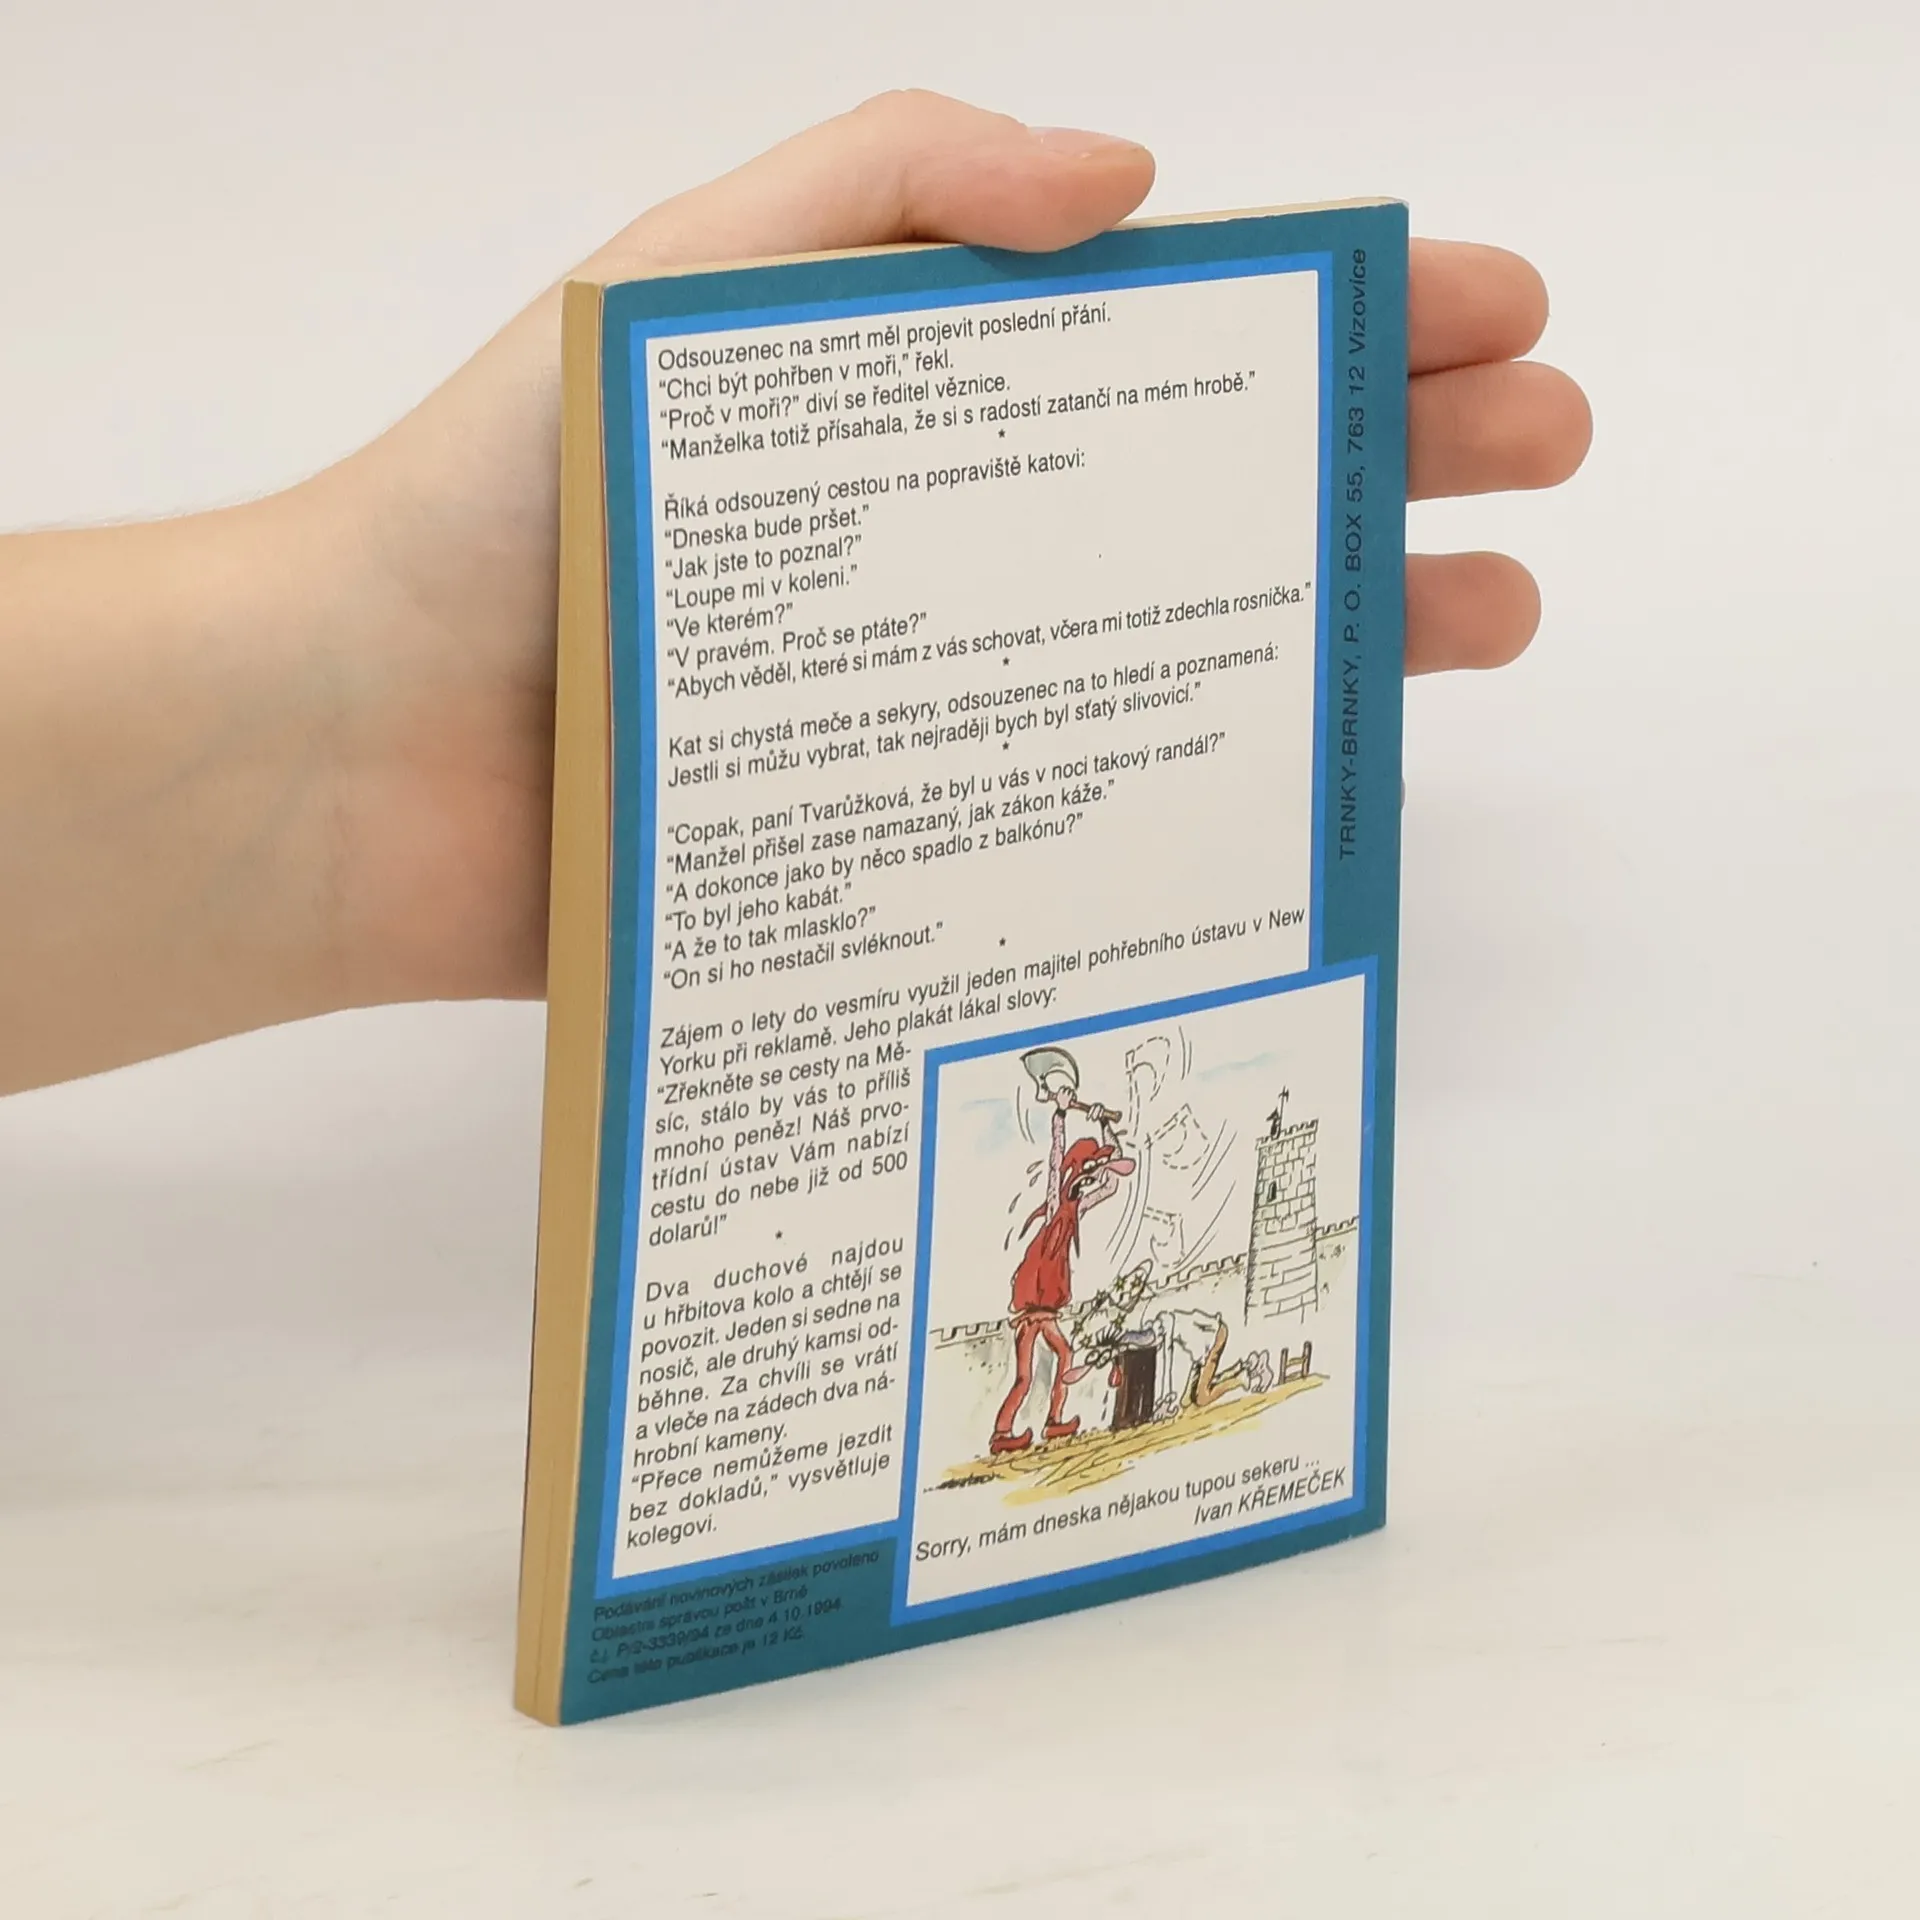 Odsouzenec na smrt měl projevit poslední přání.
“Chci být pohřben v moři,” řekl.
“Proč v moři?” diví se ředitel věznice.
“Manželka totiž přísahala, že si s radostí zatančí na mém hrobě.”
*
Říká odsouzený cestou na popraviště katovi:
“Dneska bude pršet.”
“Jak jste to poznal?”
“Loupe mi v koleni.”
“Ve kterém?”
“V pravém. Proč se ptáte?”
“Abych věděl, které si mám z vás schovat, včera mi totiž zdechla rosnička.”
*
Kat si chystá meče a sekyry, odsouzenec na to hledí a poznamená:
Jestli si můžu vybrat, tak nejraději bych byl sťatý slivovicí.”
*
“Copak, paní Tvarůžková, že byl u vás v noci takový randál?”
“Manžel přišel zase namazaný, jak zákon káže.”
“A dokonce jako by něco spadlo z balkónu?”
“To byl jeho kabát.”
“A že to tak mlasklo?”
“On si ho nestačil svléknout.”
*
Zájem o lety do vesmíru využil jeden majitel pohřebního ústavu v New
Yorku při reklamě. Jeho plakát lákal slovy:
“Zřekněte se cesty na Mě-
síc, stálo by vás to příliš
mnoho peněz! Náš prvo-
třídní ústav Vám nabízí
cestu do nebe již od 500
dolarů!”
*
Dva duchové najdou
u hřbitova kolo a chtějí se
povozit. Jeden si sedne na
nosič, ale druhý kamsi od-
běhne. Za chvíli se vrátí
a vleče na zádech dva ná-
hrobní kameny.
“Přece nemůžeme jezdit
bez dokladů,” vysvětluje
kolegovi.
Sorry, mám dneska nějakou tupou sekeru ...
Ivan KŘEMEČEK
Podávání novinových zásilek povoleno
Oblastní správou pošt v Brně
č.j. P/2-3339/94 ze dne 4.10.1994
Cena této publikace je 12 Kč.
TRNKY-BRNKY, P. O. BOX 55, 763 12 Vizovice